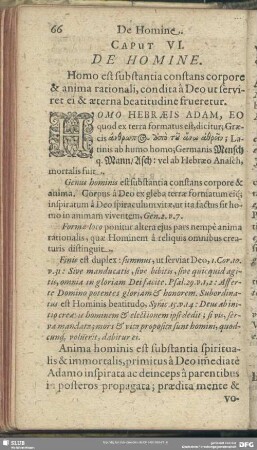 66 De Homine.
CAPUT VI.
DE HOMINE.
Homo est substantia constans corpore
& anima rationali, condita à Deo ut servi-
ret ei & æterna beatitudine frueretur.
HOMO HEBRÆIS ADAM, EO
quod ex terra formatus est, dicitur; Græ-
cis ἄνθρωπος ἀπὸ τῦ ἄνω ἀθρεῖν; La-
tinis ab humo homo; Germanis Mensch
q. Mann/Asch: vel ab Hebræo Anaich,
mortalis fuit.
Genus hominis est substantia constans corpore &
anima. Corpus à Deo ex gleba terræ formatum est;
inspiratum à Deo spiraculum vitæ: ut ita factus sit ho-
mo in animam viventem, Gen. 2. v. 7.
Formæ loco ponitur altera ejus pars nempè anima
rationalis, quæ Hominem à reliquis omnibus crea-
turis distinguit.
Finis est duplex: summus, ut serviat Deo, 1. Cor. 10.
v. 31: Sive manducatis, sive bibitis, sive quid quid agi-
tis, omnia in gloriam Dei facite. Psal. 29. v. 1, 2: Affer-
te Domino potentes gloriam & honorem. Subordina-
tus est Hominis beatitudo. Syrac. 15. v. 14: Deus ab ini-
tio creavit hominem & electionem ipsi dedit; si vis, ser-
va mandata; mors & vita proposita sunt homini, quod-
cunq; voluerit, dabitur ei.
Anima hominis est substantia spiritua-
lis & immortalis, primitus à Deo im̃ediatè
Adamo inspirata ac deinceps à parentibus
in posteros propagata; prædita mente &
vo-
SLUB